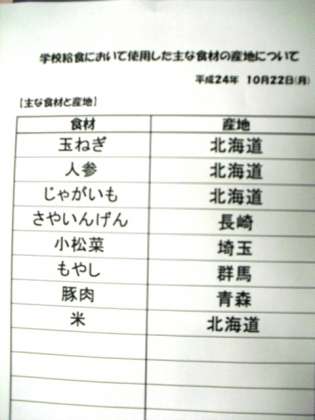 学校給食において使用した主な食材の産地について
平成24年 10月22日(月)
【主な食材と産地】
食材 産地
玉ねぎ 北海道
人参 北海道
じゃがいも 北海道
さやいんげん 長崎
小松菜 埼玉
もやし 群馬
豚肉 青森
米 北海道